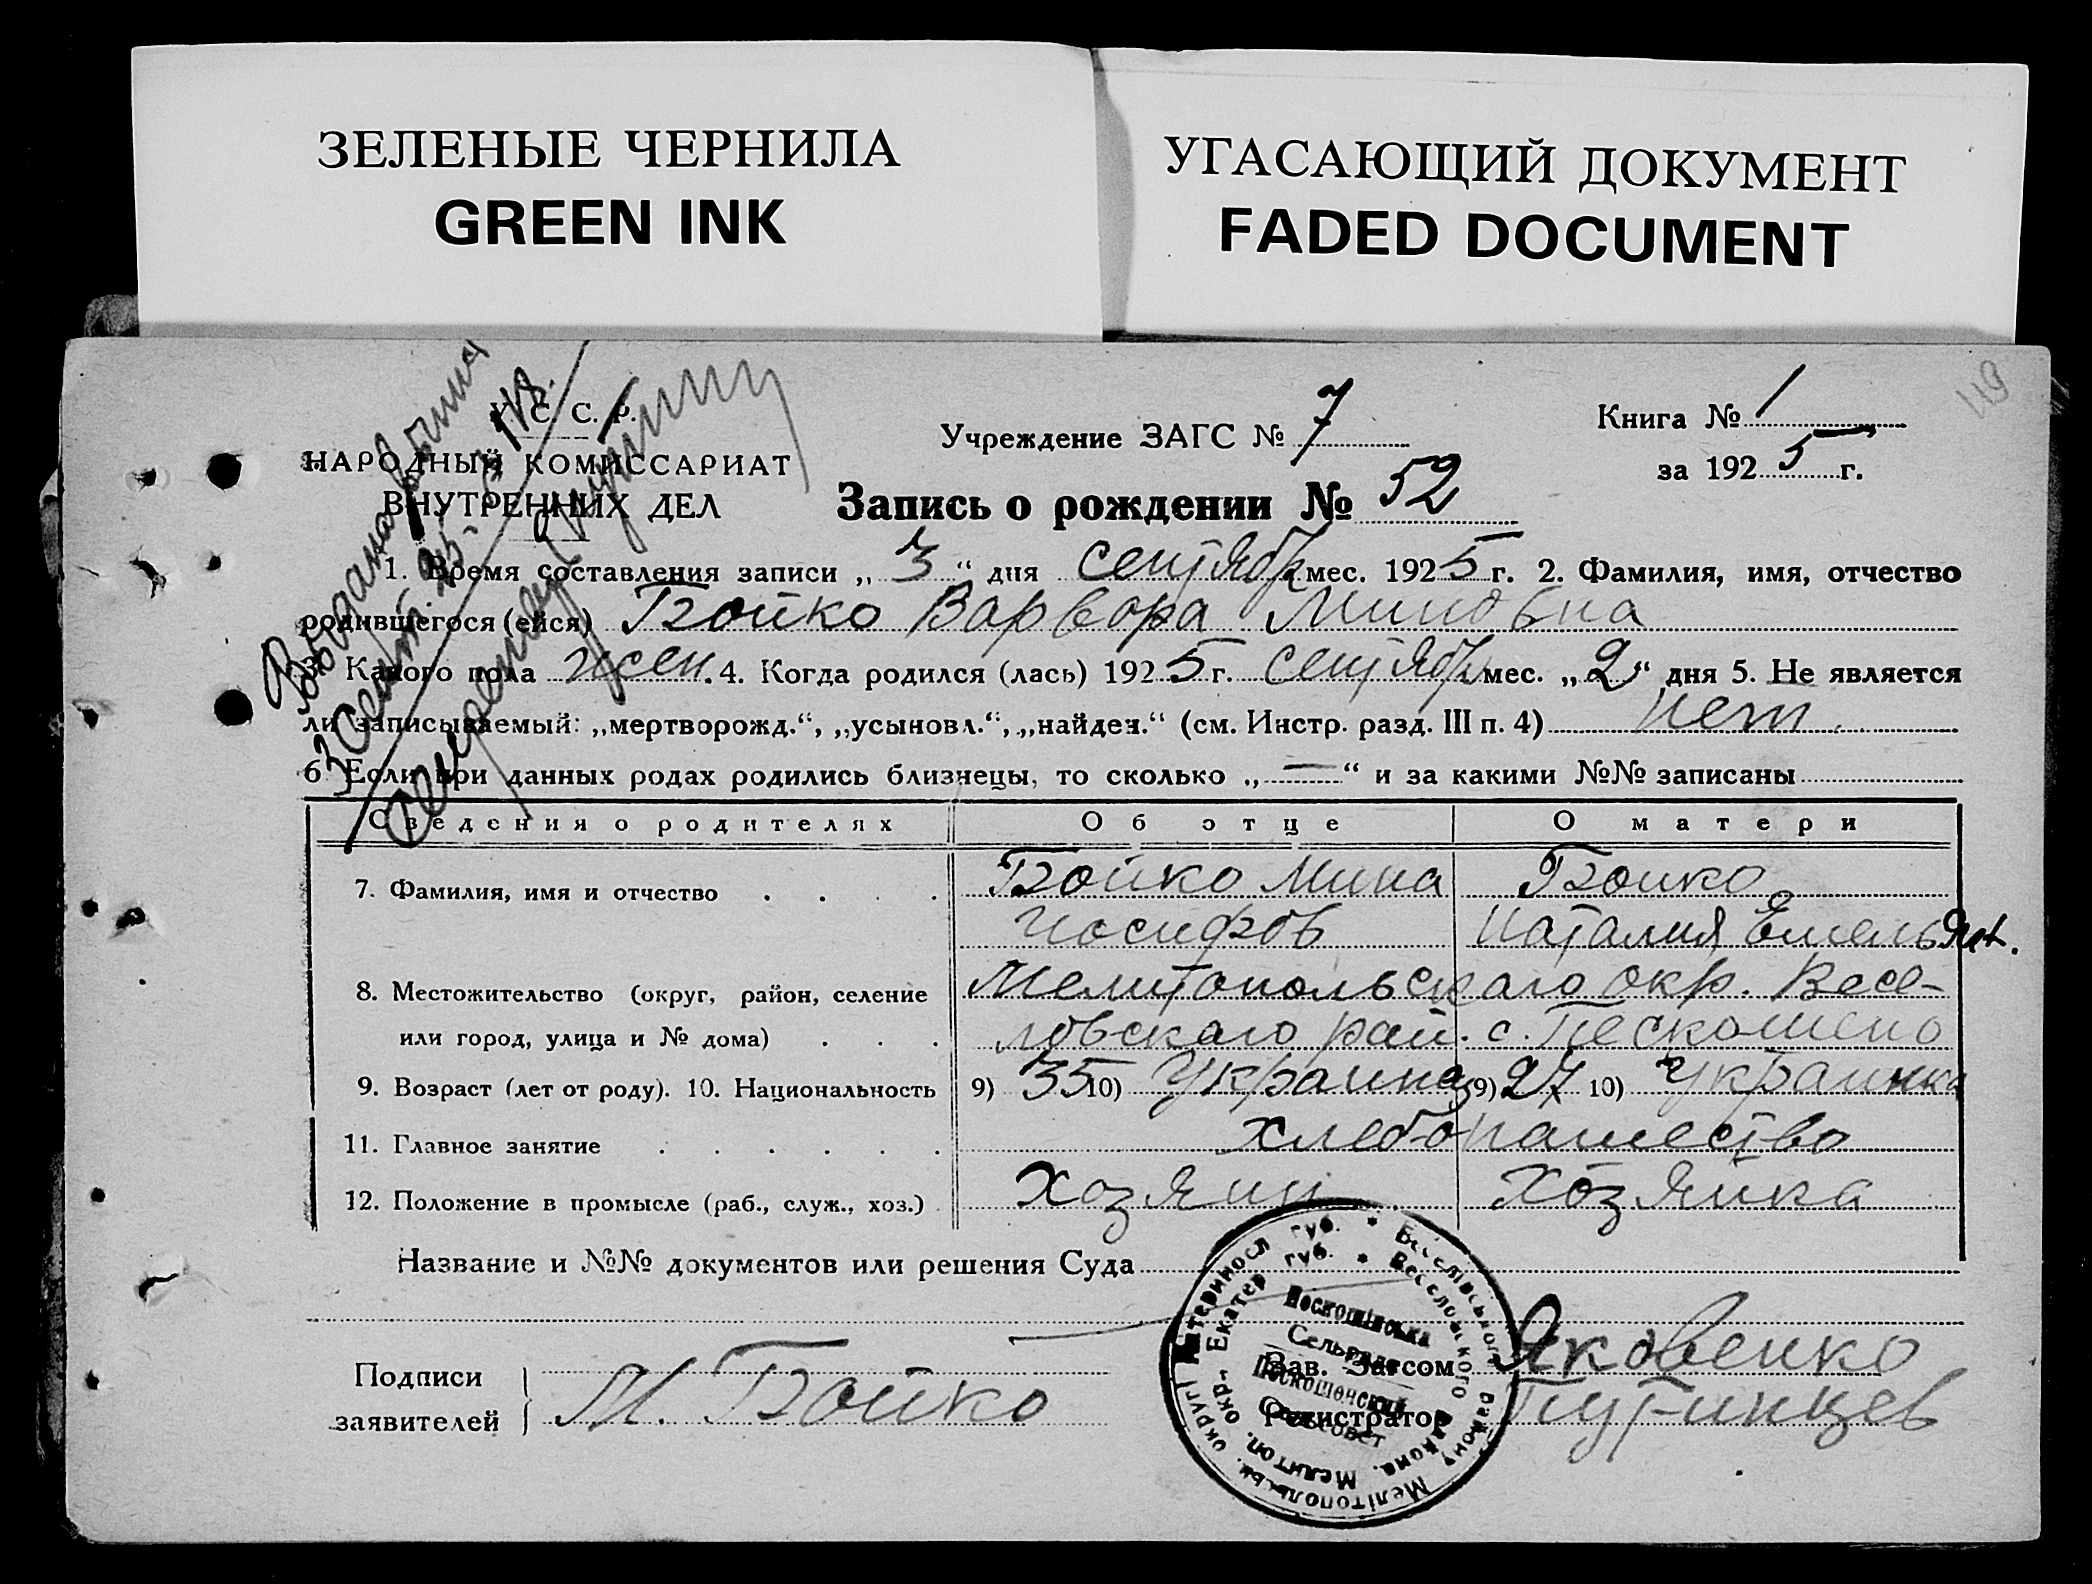 ЗЕЛЕНЫЕ ЧЕРНИЛА
GREEN INK
УГАСАЮЩИЙ ДОКУМЕНТ
FADED DOCUMENT
119
У. С. С. Р.
НАРОДНЫЙ КОМИССАРИАТ
ВНУТРЕННИХ ДЕЛ
Учреждение ЗАГС № 7
Книга № 1
за 1925 г.
Запись о рождении № 52
1. Время составления записи „3“ дня сентябр мес. 1925 г. 2. Фамилия, имя, отчество
родившегося (ейся) Бойко Варвора Миновна
3. Какого пола жен. 4. Когда родился (лась) 1925 г. сентябр мес. „2“ дня 5. Не является
ли записываемый: „мертворожд.“, „усыновл.“, „найден.“ (см. Инстр. разд. III п. 4) нет.
6. Если при данных родах родились близнецы, то сколько „—“ и за какими №№ записаны
Сведения о родителях Об отце О матери
7. Фамилия, имя и отчество . . . . Бойко Мина Бойко
Иосифов Наталия Емельян.
8. Местожительство (округ, район, селение Мелитопольскаго окр. Весе-
или город, улица и № дома) . . . ловскаго рай. с. Пескошено
9. Возраст (лет от роду). 10. Национальность 9) 35 10) Украинец 9) 27 10) Украинка
11. Главное занятие . . . . . . хлебопашество
12. Положение в промысле (раб., служ., хоз.) . Хозяин Хозяйка
Название и №№ документов или решения Суда
Подписи
заявителей
М. Бойко
Зав. Загсом Яковенко
Регистратор
Пескошинська
Сельрада
Пескошенский
Сельсовет